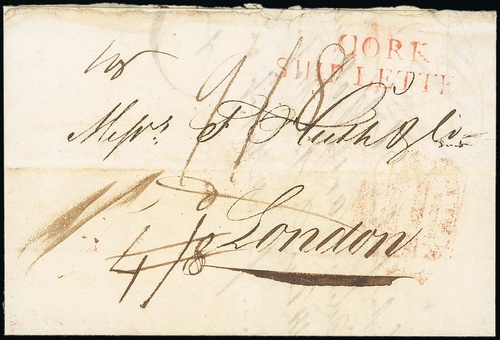 CORK
SHIP LETTER
9/8
Messrs. F Huth & Co
London
4/8